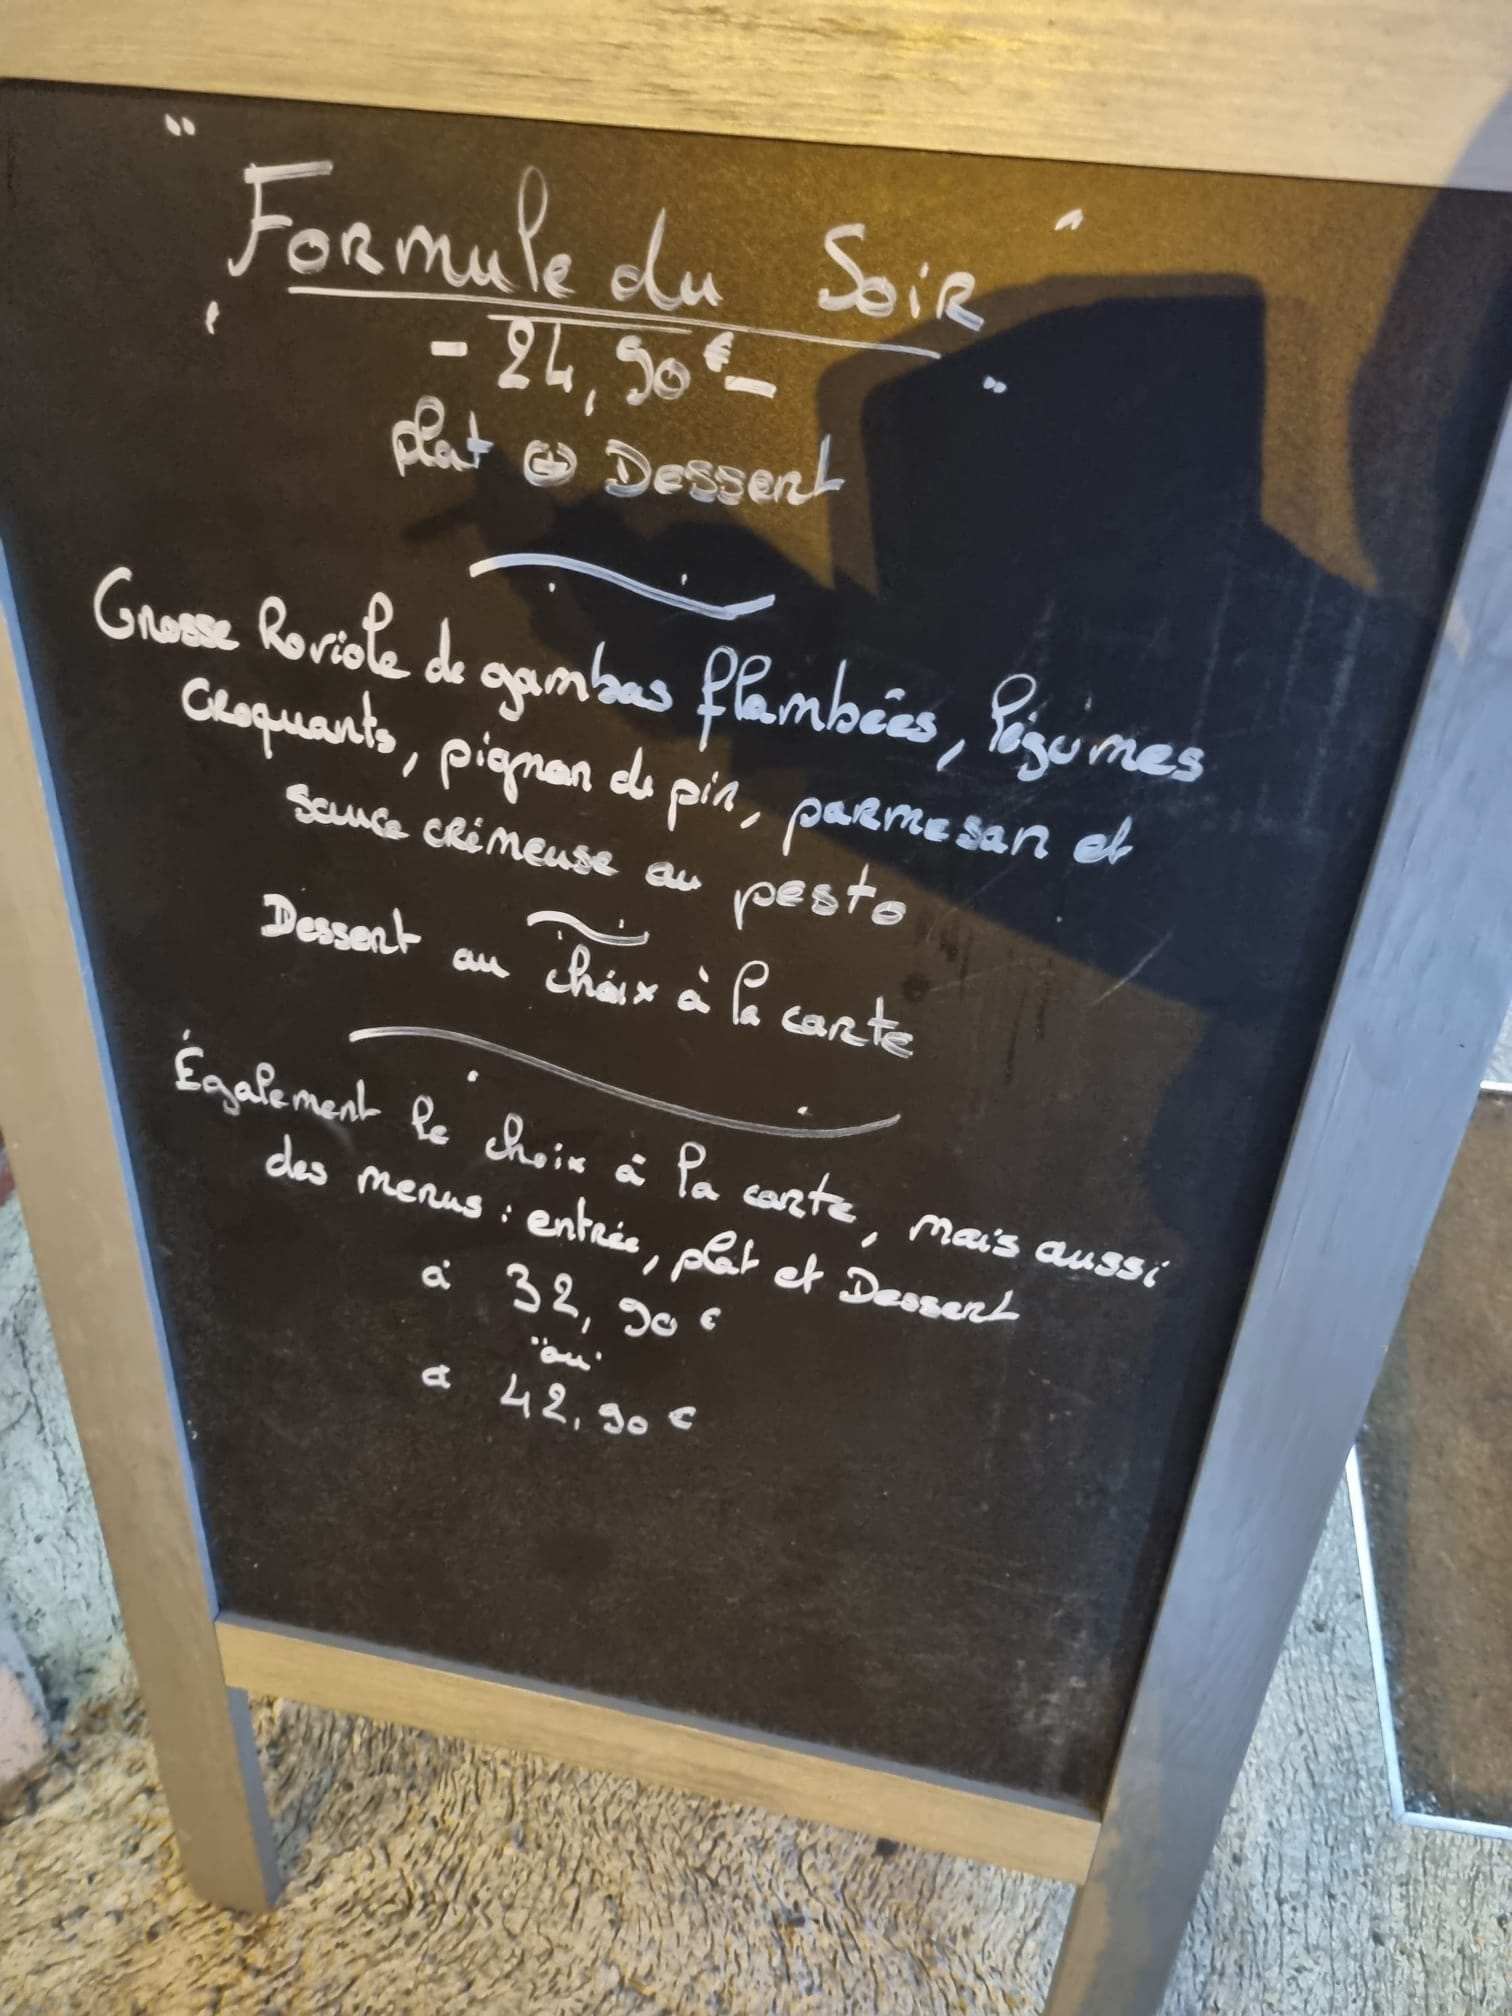 "Formule du Soir"
- 24,90€ -
plat + Dessert
Grosse Raviole de gambas flambées, légumes
croquants, pignon de pin, parmesan et
sauce crémeuse au pesto
Dessert au choix à la carte
Également le choix à la carte, mais aussi
des menus : entrée, plat et Dessert
à 32,90€
"ou"
à 42,90€